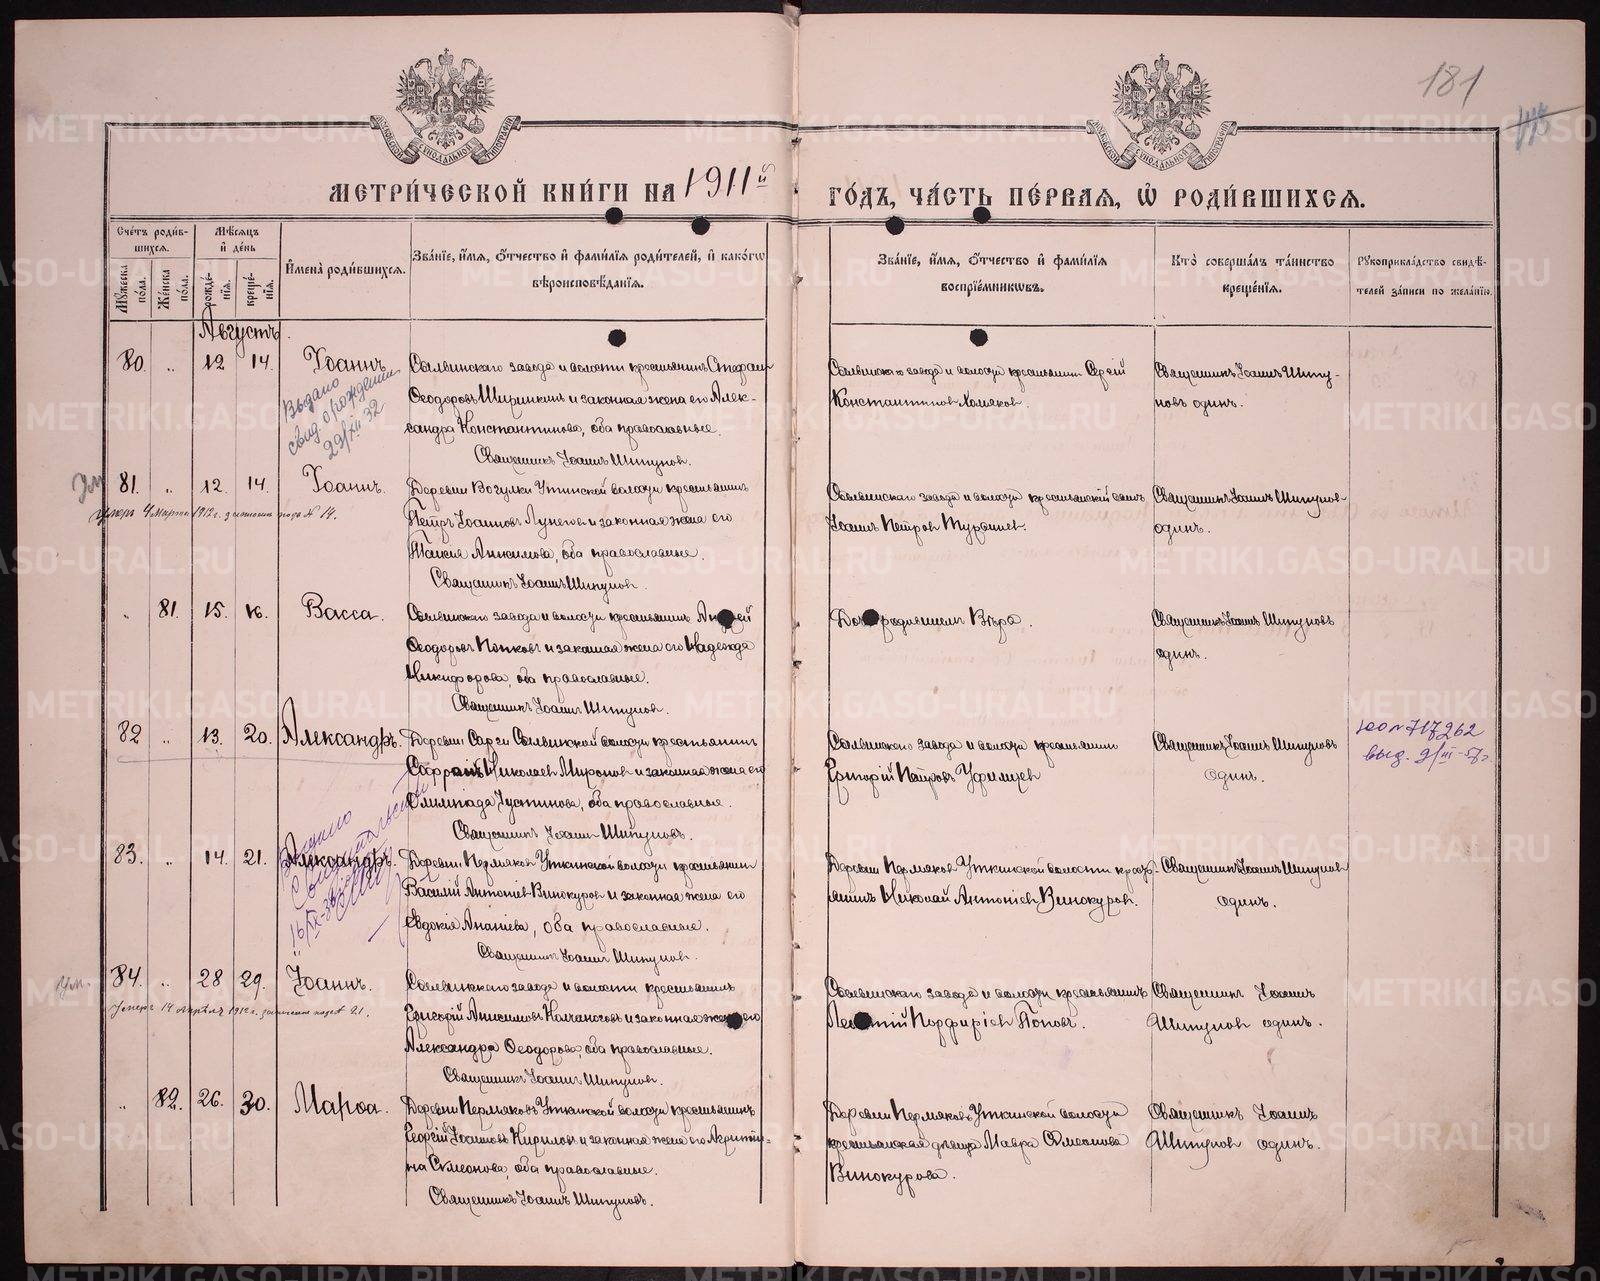 181
МЕТРИ́ЧЕСКОЙ КНИ́ГИ НА 1911й ГО́ДЪ, ЧА́СТЬ ПЕ́РВАЯ, Ѽ РОДИ́ВШИХСЯ.
Сче́тъ роди́вшихся.
Мꙋ́жеска по́ла.
Же́нска по́ла.
Мѣ́сяцъ и де́нь
рожде́нїя.
креще́нїя.
И҆мена̀ роди́вшихся.
Зва́нїе, и҆́мя, ѻ҆́тчество и҆ фамилїя роди́телей, и҆ како́гѡ
вѣроисповѣ́данїя.
Зва́нїе, и҆́мя, ѻ҆́тчество и҆ фамилїя
воспрїе́мникѡвъ.
Кто̀ соверша́лъ та́инство
креще́нїя.
Рꙋкоприкла́дство свидѣ́-
телей за́писи по жела́нїю.
Августъ.
80. „ 12 14. Іоаннъ.
Сылвинскаго завода и волости крестьянинъ Стефанъ
Ѳеодоровъ Ширинкинъ и законная жена его Алек-
сандра Константинова, оба православные.
Священникъ Іоаннъ Шипуновъ.
Сылвинскаго завода и волости крестьянинъ Сергій
Константиновъ Хомяковъ.
Священникъ Іоаннъ Шипу-
новъ одинъ.
Выдано
свид. о рождении
29/XII 32
Ум
81. „ 12. 14. Іоаннъ.
Умеръ 4 марта 1912 г. записанъ подъ № 14.
Деревни Вогулки Уткинской волости крестьянинъ
Петръ Іоанновъ Лунеговъ и законная жена его
Таисія Анисимова, оба православные.
Священникъ Іоаннъ Шипуновъ.
Сылвинскаго завода и волости крестьянскій сынъ
Іоаннъ Петровъ
Священникъ Іоаннъ Шипуновъ
одинъ.
„ 81. 15. 16. Васса.
Сылвинскаго завода и волости крестьянинъ Андрей
Ѳеодоровъ Попковъ и законная жена его Надежда
Никифорова, оба православные.
Священникъ Іоаннъ Шипуновъ.
Вѣра.
Священникъ Іоаннъ Шипуновъ
одинъ.
82 „ 13. 20. Александръ.
Деревни Сарги Сылвинской волости крестьянинъ
Софронъ Николаевъ Мироновъ и законная жена его
Олимпіада Іустинова, оба православные.
Священникъ Іоаннъ Шипуновъ.
Сылвинскаго завода и волости крестьянинъ
Григорій Петровъ Уфимцевъ
Священникъ Іоаннъ Шипуновъ
одинъ.
ЮО № 717262
выд. 9/III-57г
83. „ 14. 21. Александръ.
16/IX-36
Деревни Пермяковъ Уткинской волости крестьянинъ
Василій Антоніевъ Винокуровъ и законная жена его
Евдокія Ананіева, оба православные.
Священникъ Іоаннъ Шипуновъ.
Деревни Пермяковъ Уткинской волости кресть-
янинъ Николай Антоніевъ Винокуровъ.
Священникъ Іоаннъ Шипуновъ
одинъ.
Ум.
84. „ 28 29. Іоаннъ.
Умеръ 14 апрѣля 1912 г. записанъ подъ № 21.
Сылвинскаго завода и волости крестьянинъ
Григорій Анисимовъ и законная жена его
Александра Ѳеодорова, оба православные.
Священникъ Іоаннъ Шипуновъ.
Сылвинскаго завода и волости крестьянинъ
Порфиріевъ Поповъ.
Священникъ Іоаннъ
Шипуновъ одинъ.
„ 82. 26. 30. Марѳа.
Деревни Пермяковъ Уткинской волости крестьянинъ
Георгій Іоанновъ Кириловъ и законная жена его Агрипи-
на Симеонова, оба православные.
Священникъ Іоаннъ Шипуновъ.
Деревни Пермяковъ Уткинской волости
крестьянская дѣвица Мавра Симеонова
Винокурова.
Священникъ Іоаннъ
Шипуновъ одинъ.
METRIKI.GASO-URAL.RU